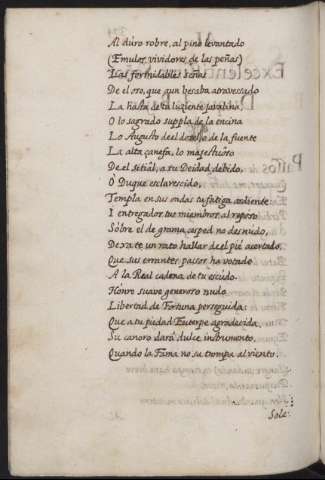 Al duro robre, al pino levantado
(Emulos vividores de las peñas)
Las formidables señas
De el oso, que aun besaba atravesado
La hasta de tu luziente javalina,
O lo sagrado supla de la encina
Lo Augusto de el dosel, o de la fuente
La alta çanefa, lo majestuoso
De el sitial, a tu Deidad debido,
O Duque esclarecido,
Templa en sus ondas tu fatiga ardiente
I entregados tus miembros al reposo
Sobre el de grama cesped no desnudo,
Dexate un rato hallar de el pie acertado,
Que sus errantes passos ha votado
A la Real cadena de tu escudo.
Honre suave generoso nudo
Libertad de Fortuna perseguida:
Que a tu piedad Euterpe agradecida,
Su canoro dará dulce instrumento,
Quando la Fama no su trompa al viento.
Sole: